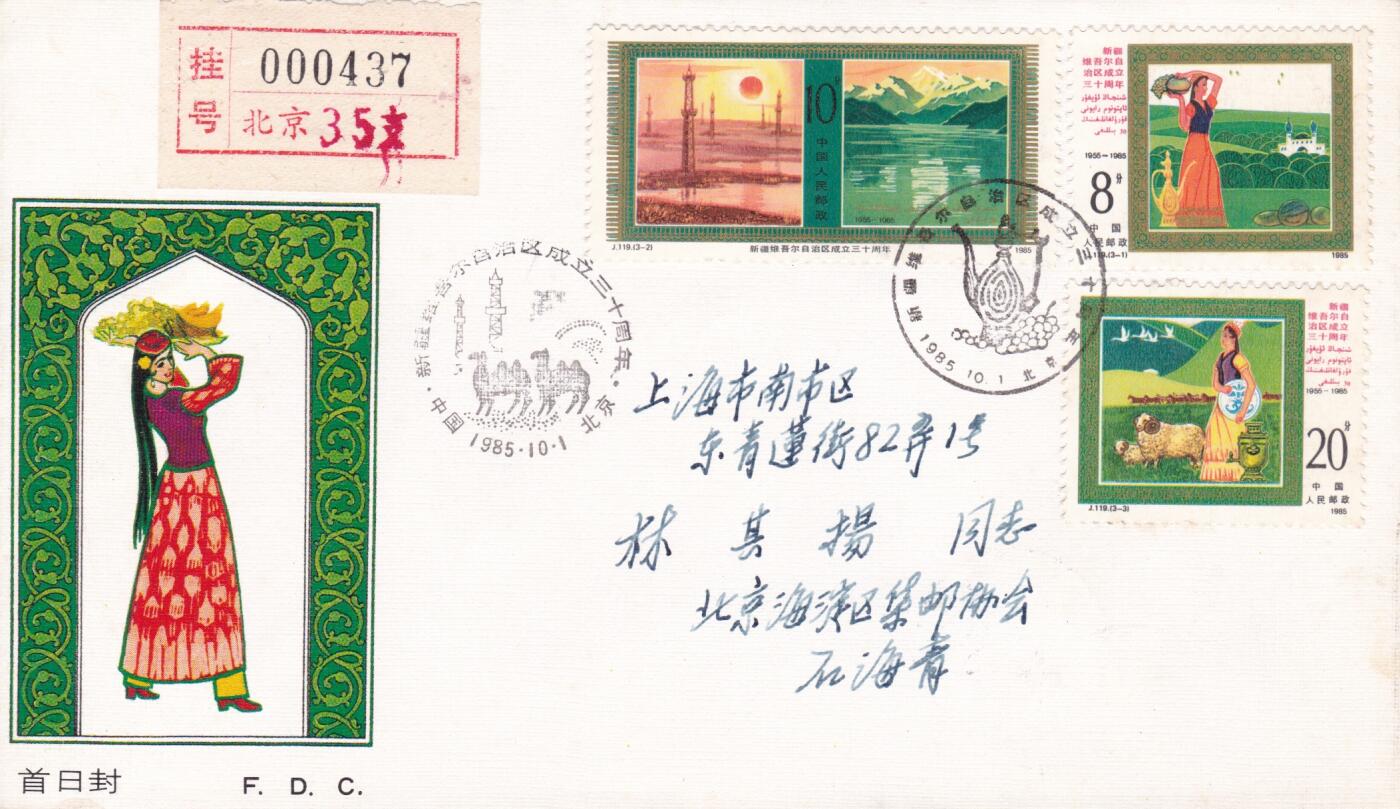 挂号
000437
北京 35支
10分
中国人民邮政
1955—1985
J.119.(3-2)
新疆维吾尔自治区成立三十周年
1985
新疆
维吾尔自
治区成立
三十周年
شىنجاڭ ئۇيغۇر
ئاپتونوم رايونى
قۇرۇلغانلىقىنىڭ
30 يىللىقى
1955—1985
8分
中国
人民邮政
J.119.(3-1)
1985
新疆
维吾尔自
治区成立
三十周年
شىنجاڭ ئۇيغۇر
ئاپتونوم رايونى
قۇرۇلغانلىقىنىڭ
30 يىللىقى
1955—1985
20分
中国
人民邮政
J.119.(3-3)
1985
新疆维吾尔自治区成立三十周年
1985.10.1 北京
新疆维吾尔自治区成立三十周年
中国 1985·10·1 北京
上海市南市区
东青莲街82弄1号
林其揚 同志
北京海淀区集邮协会
石海青
首日封
F. D. C.